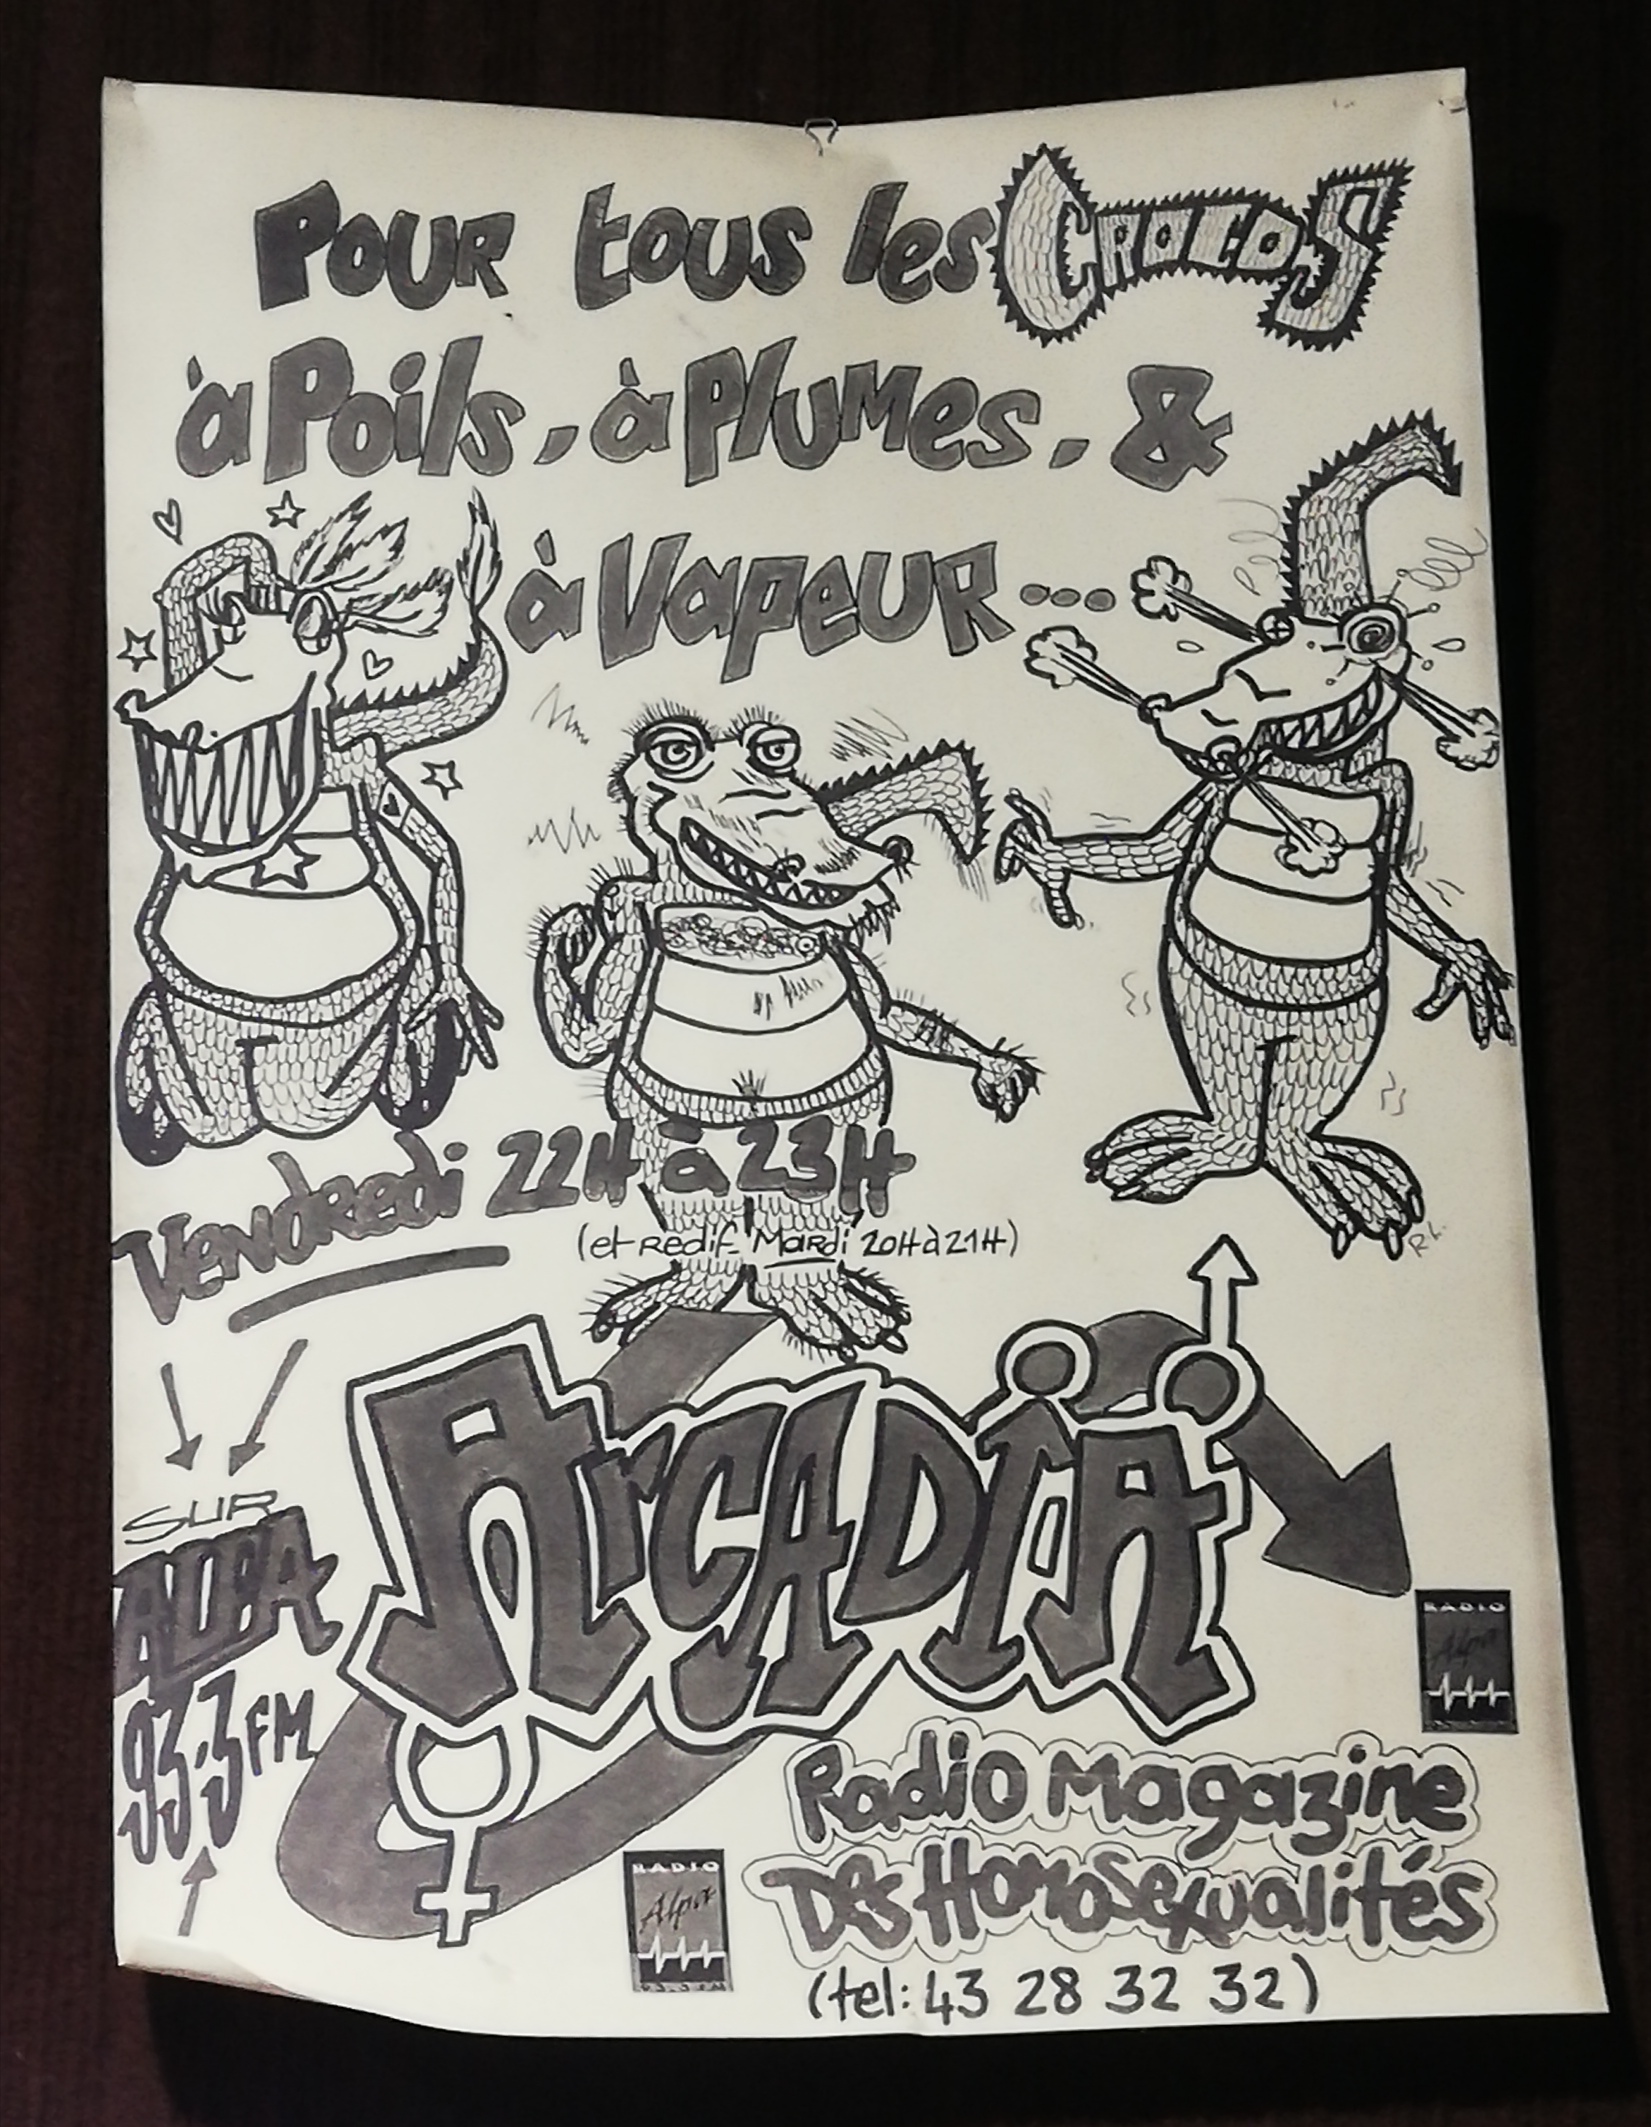 Pour tous les Crocos
à Poils, à Plumes, &
à Vapeur...
Vendredi 22H à 23H
(et Redif. Mardi 20H à 21H)
SUR
ALFA
93.3 FM
ArCADIA
RADIO
Alpa
Radio Magazine
Des Homosexualités
RADIO
Alpa
93.3 FM
(tel: 43 28 32 32)
R.L.